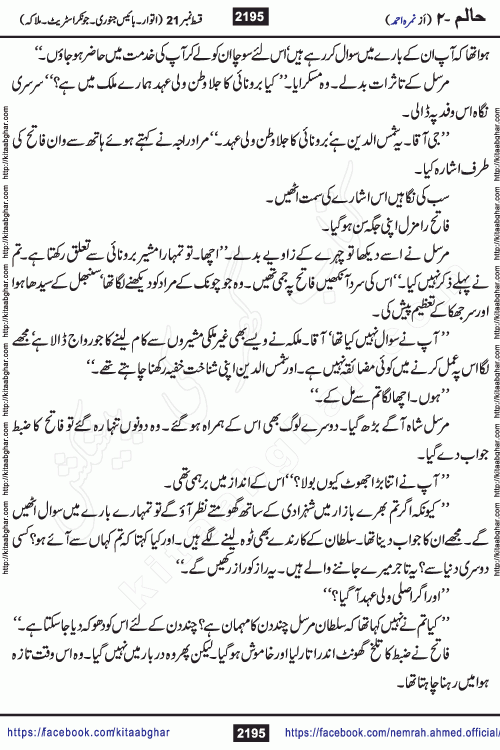 حالم -۲ (از نمرہ احمد) 2195 قسط نمبر 21 (اتوار۔ بائیس جنوری۔ جونکر اسٹریٹ۔ ملاکہ)
ہوا تھا کہ آپ ان کے بارے میں سوال کر رہے ہیں، اس لئے سوچا ان کو لے کر آپ کی خدمت میں حاضر ہو جاؤں۔“
مرسل کے تاثرات بدلے۔ وہ مسکرایا۔ ”کیا برونائی کا جلاوطن ولی عہد ہمارے ملک میں ہے؟“ سرسری
نگاہ اس وفد پہ ڈالی۔
”جی آقا۔ یہ شمس الدین ہے، برونائی کا جلاوطن ولی عہد۔“ مراد راجہ نے کہتے ہوئے ہاتھ سے وان فاتح کی
طرف اشارہ کیا۔
سب کی نگاہیں اس اشارے کی سمت اٹھیں۔
فاتح رامزل اپنی جگہ سن ہو گیا۔
مرسل نے اسے دیکھا تو چہرے کے زاویے بدلے۔ ”اچھا۔ تو تمہارا مشیر برونائی سے تعلق رکھتا ہے۔ تم
نے پہلے ذکر نہیں کیا۔“ اس کی سرد آنکھیں فاتح پہ جمی تھیں۔ وہ جو چونک کے مراد کو دیکھنے لگا تھا، سنبھل کے سیدھا ہوا
اور سر جھکا کے تعظیم پیش کی۔
”آپ نے سوال نہیں کیا تھا، آقا۔ ملکہ نے ویسے بھی غیر ملکی مشیروں سے کام لینے کا جو رواج ڈالا ہے، مجھے
لگا اس پہ عمل کرنے میں کوئی مضائقہ نہیں ہے۔ اور شمس الدین اپنی شناخت خفیہ رکھنا چاہتے تھے۔“
”ہوں۔ اچھا لگا تم سے مل کے۔“
مرسل شاہ آگے بڑھ گیا۔ دوسرے لوگ بھی اس کے ہمراہ ہو گئے۔ وہ دونوں تنہا رہ گئے تو فاتح کا ضبط
جواب دے گیا۔
”آپ نے اتنا بڑا جھوٹ کیوں بولا؟“ اس کے انداز میں برہمی تھی۔
”کیونکہ اگر تم بھرے بازار میں شہزادی کے ساتھ گھومتے نظر آؤ گے تو تمہارے بارے میں سوال اٹھیں
گے۔ مجھے ان کا جواب دینا تھا۔ سلطان کے کارندے بھی ٹوہ لینے لگے ہیں۔ اور کیا کہتا کہ تم کہاں سے آئے ہو؟ کسی
دوسری دنیا سے؟ یہ تاجر میرے جاننے والے ہیں۔ یہ راز کو راز رکھیں گے۔“
”اور اگر اصلی ولی عہد آ گیا؟“
”کیا تم نے نہیں کہا تھا کہ سلطان مرسل چند دن کا مہمان ہے؟ چند دن کے لئے اس کو دھوکہ دیا جا سکتا ہے۔“
فاتح نے ضبط کا تلخ گھونٹ اندر اتار لیا اور خاموش ہو گیا۔ لیکن پھر وہ دربار میں نہیں گیا۔ وہ اس وقت تازہ
ہوا میں رہنا چاہتا تھا۔
http://kitaabghar.com http://kitaabghar.com http://kitaabghar.com http://kitaabghar.com http://kitaabghar.com
https://facebook.com/kitaabghar 2195 https://facebook.com/nemrah.ahmed.official/